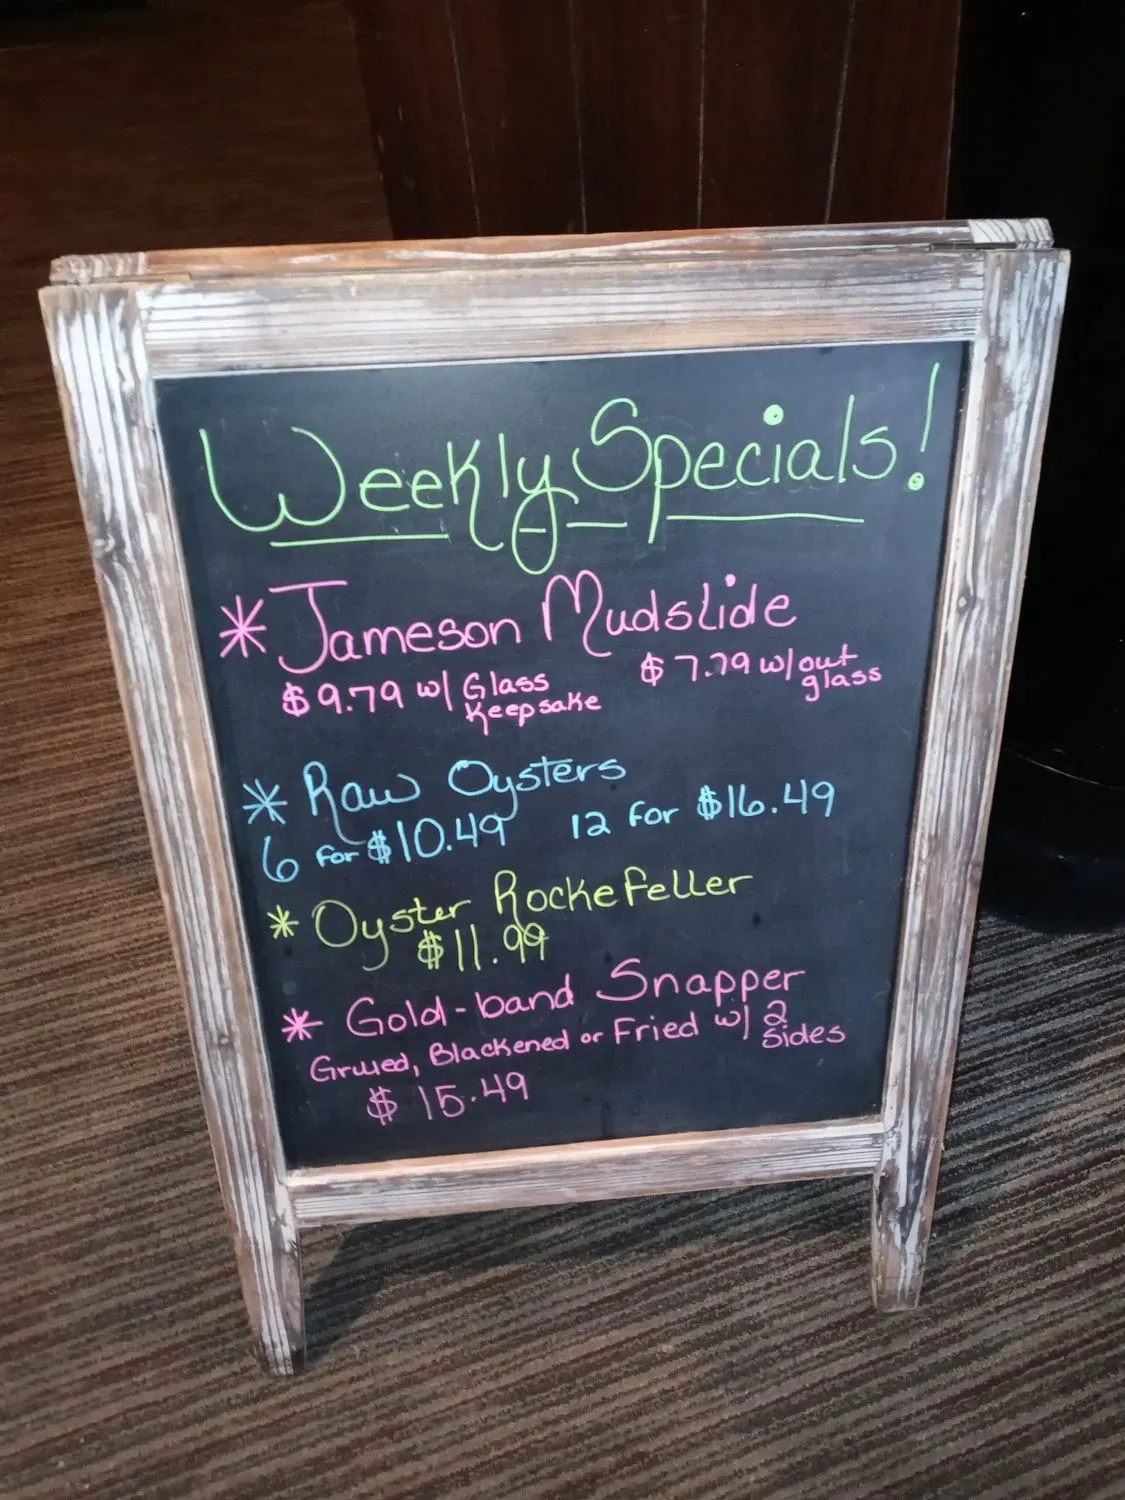 Weekly Specials!
* Jameson Mudslide
$9.79 w/ Glass Keepsake $7.79 w/out glass
* Raw Oysters
6 for $10.49 12 for $16.49
* Oyster Rockefeller
$11.99
* Gold-band Snapper
Grilled, Blackened or Fried w/ 2 Sides
$15.49